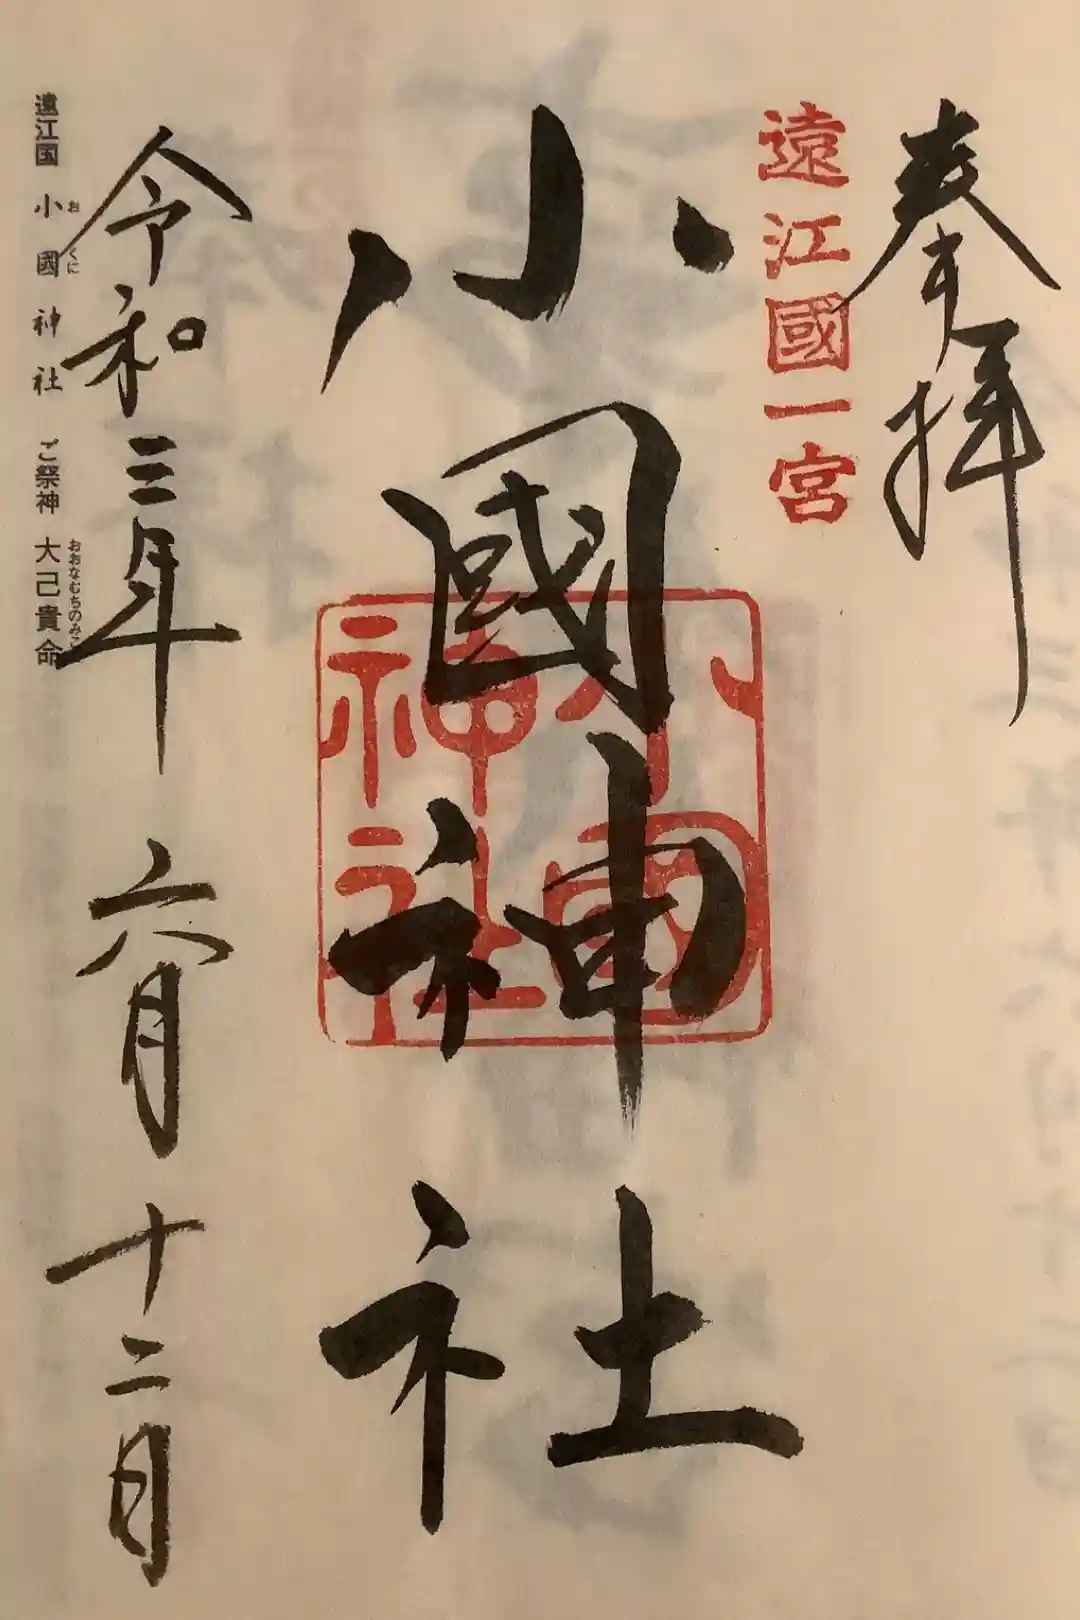 奉拝
遠江國一宮
小國神社
小國神社
令和三年六月十二日
遠江国 小國神社 ご祭神 大己貴命
おくに
おおなむちのみこ